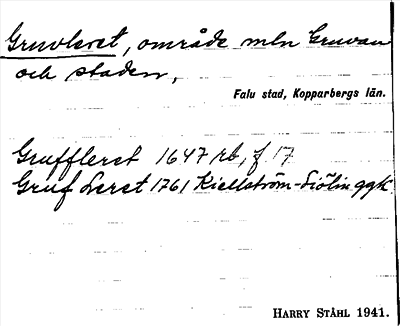 Gruvleret, område mln Gruvan
och staden,
Falu stad, Kopparbergs län.
Gruffleret 1647 rb, f 17
Gruf Leret 1761 Kiellström-Siölin ggk
HARRY STÅHL 1941.